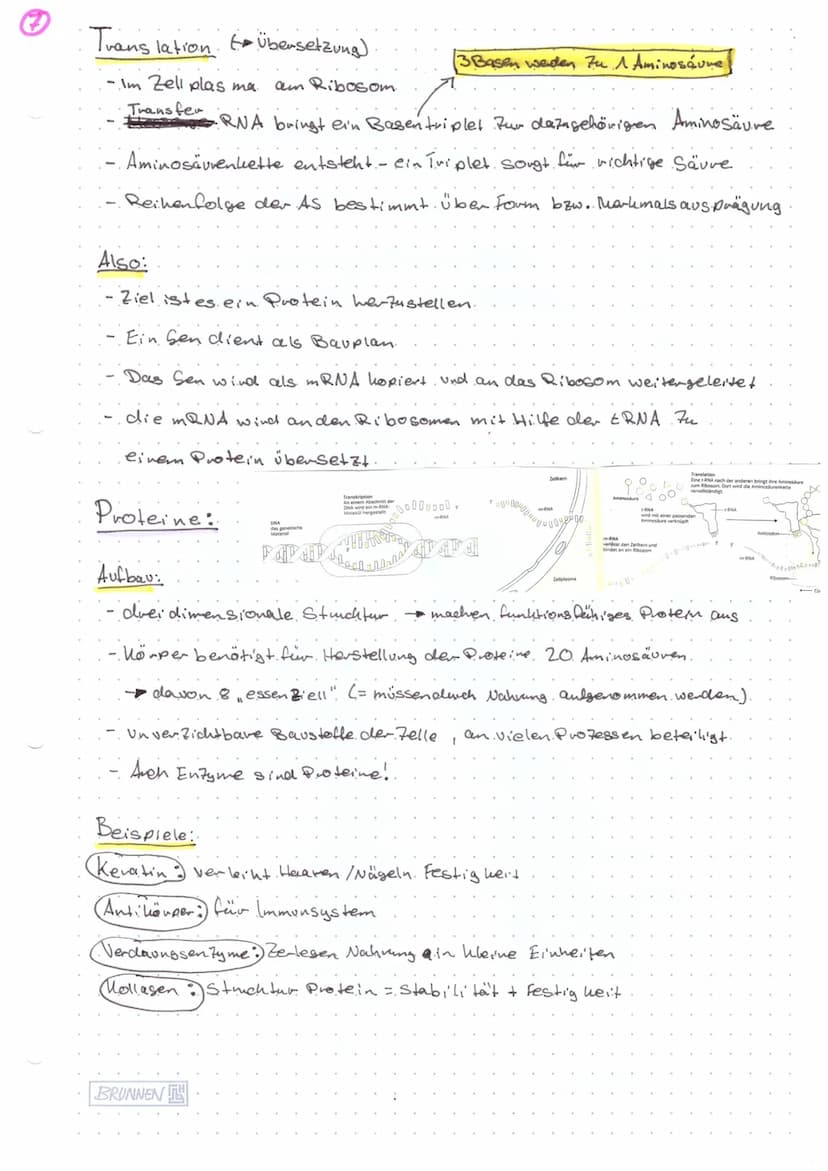 7
Translation (→ Übersetzung)
3 Basen werden zu 1 Aminosäure
- Im Zellplasma am Ribosom
Transfer
- RNA bringt ein Basentriplet zur dazugehörigen Aminosäure
- Aminosäurenkette entsteht - ein Triplet sorgt für richtige Säure
- Reihenfolge der AS bestimmt über Form bzw. Merkmalsausprägung
Also:
- Ziel ist es ein Protein herzustellen
- Ein Gen dient als Bauplan
- Das Gen wird als mRNA kopiert und an das Ribosom weitergeleitet
- die mRNA wird an den Ribosomen mit Hilfe der tRNA zu
einem Protein übersetzt
Proteine:
DNA
das genetische
Material
Transkription
An einem Abschnitt der
DNA wird ein m-RNA-
Molekül hergestellt
m-RNA
Zellkern
m-RNA
Zellplasma
Translation
Eine t-RNA nach der anderen bringt ihre Aminosäure
zum Ribosom. Dort wird die Aminosäurenkette
vervollständigt.
Aminosäure
t-RNA
wird mit einer passenden
Aminosäure verknüpft
t-RNA
m-RNA
verlässt den Zellkern und
bindet an ein Ribosom
m-RNA
Ribosom
Aufbau:
- dreidimensionale Struktur → machen funktionsfähiges Protein aus
- Körper benötigt für Herstellung der Proteine 20 Aminosäuren
→ davon 8 „essenziell" (= müssen durch Nahrung aufgenommen werden)
- unverzichtbare Baustoffe der Zelle, an vielen Prozessen beteiligt
- Auch Enzyme sind Proteine!
Beispiele:
Keratin: verleiht Haaren/Nägeln Festigkeit
Antikörper: für Immunsystem
Verdauungsenzyme: Zerlegen Nahrung in kleine Einheiten
Kollagen: Struktur Protein = Stabilität + Festigkeit
BRUNNEN